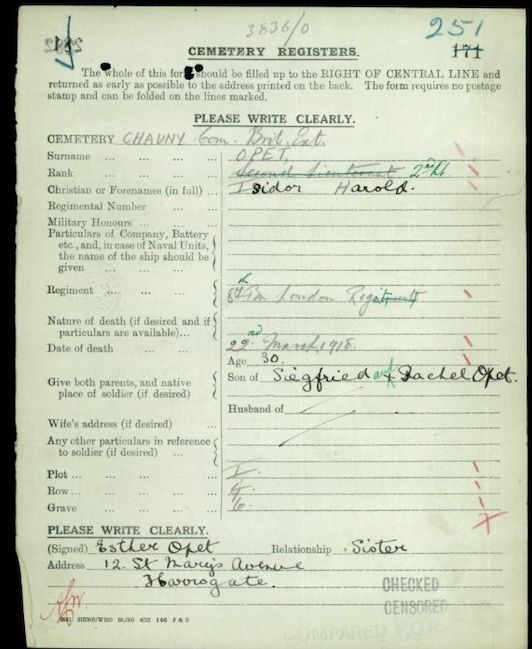 3836/0
251
171
CEMETERY REGISTERS.
The whole of this form should be filled up to the RIGHT OF CENTRAL LINE and
returned as early as possible to the address printed on the back. The form requires no postage
stamp and can be folded on the lines marked.
PLEASE WRITE CLEARLY.
CEMETERY CHAUNY Com. Brit. Ext.
Surname ... ... ... OPET,
Rank ... ... ... Second Lieutenant 2nd Lt.
Christian or Forenames (in full) ... Isidor Harold.
Regimental Number ... ...
Military Honours ... ... ...
Particulars of Company, Battery
etc., and, in case of Naval Units,
the name of the ship should be
given ... ... ...
Regiment ... ... ... 8th Bn London Regiment
Nature of death (if desired and if
particulars are available)...
Date of death ... ... 22nd March, 1918.
Age 30.
Give both parents, and native
place of soldier (if desired)
Son of Siegfried and & Rachel Opet.
Husband of
Wife's address (if desired) ...
Any other particulars in reference
to soldier (if desired) ...
Plot ... ... ... ... I.
Row ... ... ... ...
Grave ... ... ... 6.
PLEASE WRITE CLEARLY.
(Signed) Esther Opet Relationship Sister
Address 12. St Mary's Avenue
Harrogate.
CHECKED
CENSORED
31556B/W160 50,000 4/23 146 F & S
COMPARED